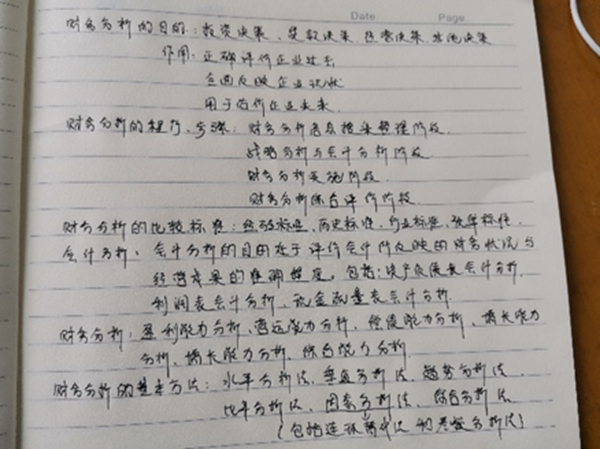 Date Page
财务分析的目的：投资决策、贷款决策、经营决策、其他决策
作用：正确评价企业过去
全面反映企业现状
用于估价企业未来.
财务分析的程序、步骤：财务分析信息搜集整理阶段.
战略分析与会计分析阶段.
财务分析实施阶段.
财务分析综合评价阶段.
财务分析的比较标准：经验标准、历史标准、行业标准、预算标准.
会计分析：会计分析的目的在于评价会计所反映的财务状况与
经营成果的准确程度，包括：资产负债表会计分析、
利润表会计分析、现金流量表会计分析
财务分析：盈利能力分析、营运能力分析、偿债能力分析、增长能力
分析、增长能力分析、综合能力分析
财务分析的基本方法：水平分析法、垂直分析法、趋势分析法
比率分析法、因素分析法、综合分析法
（包括连环替代法和差额分析法）